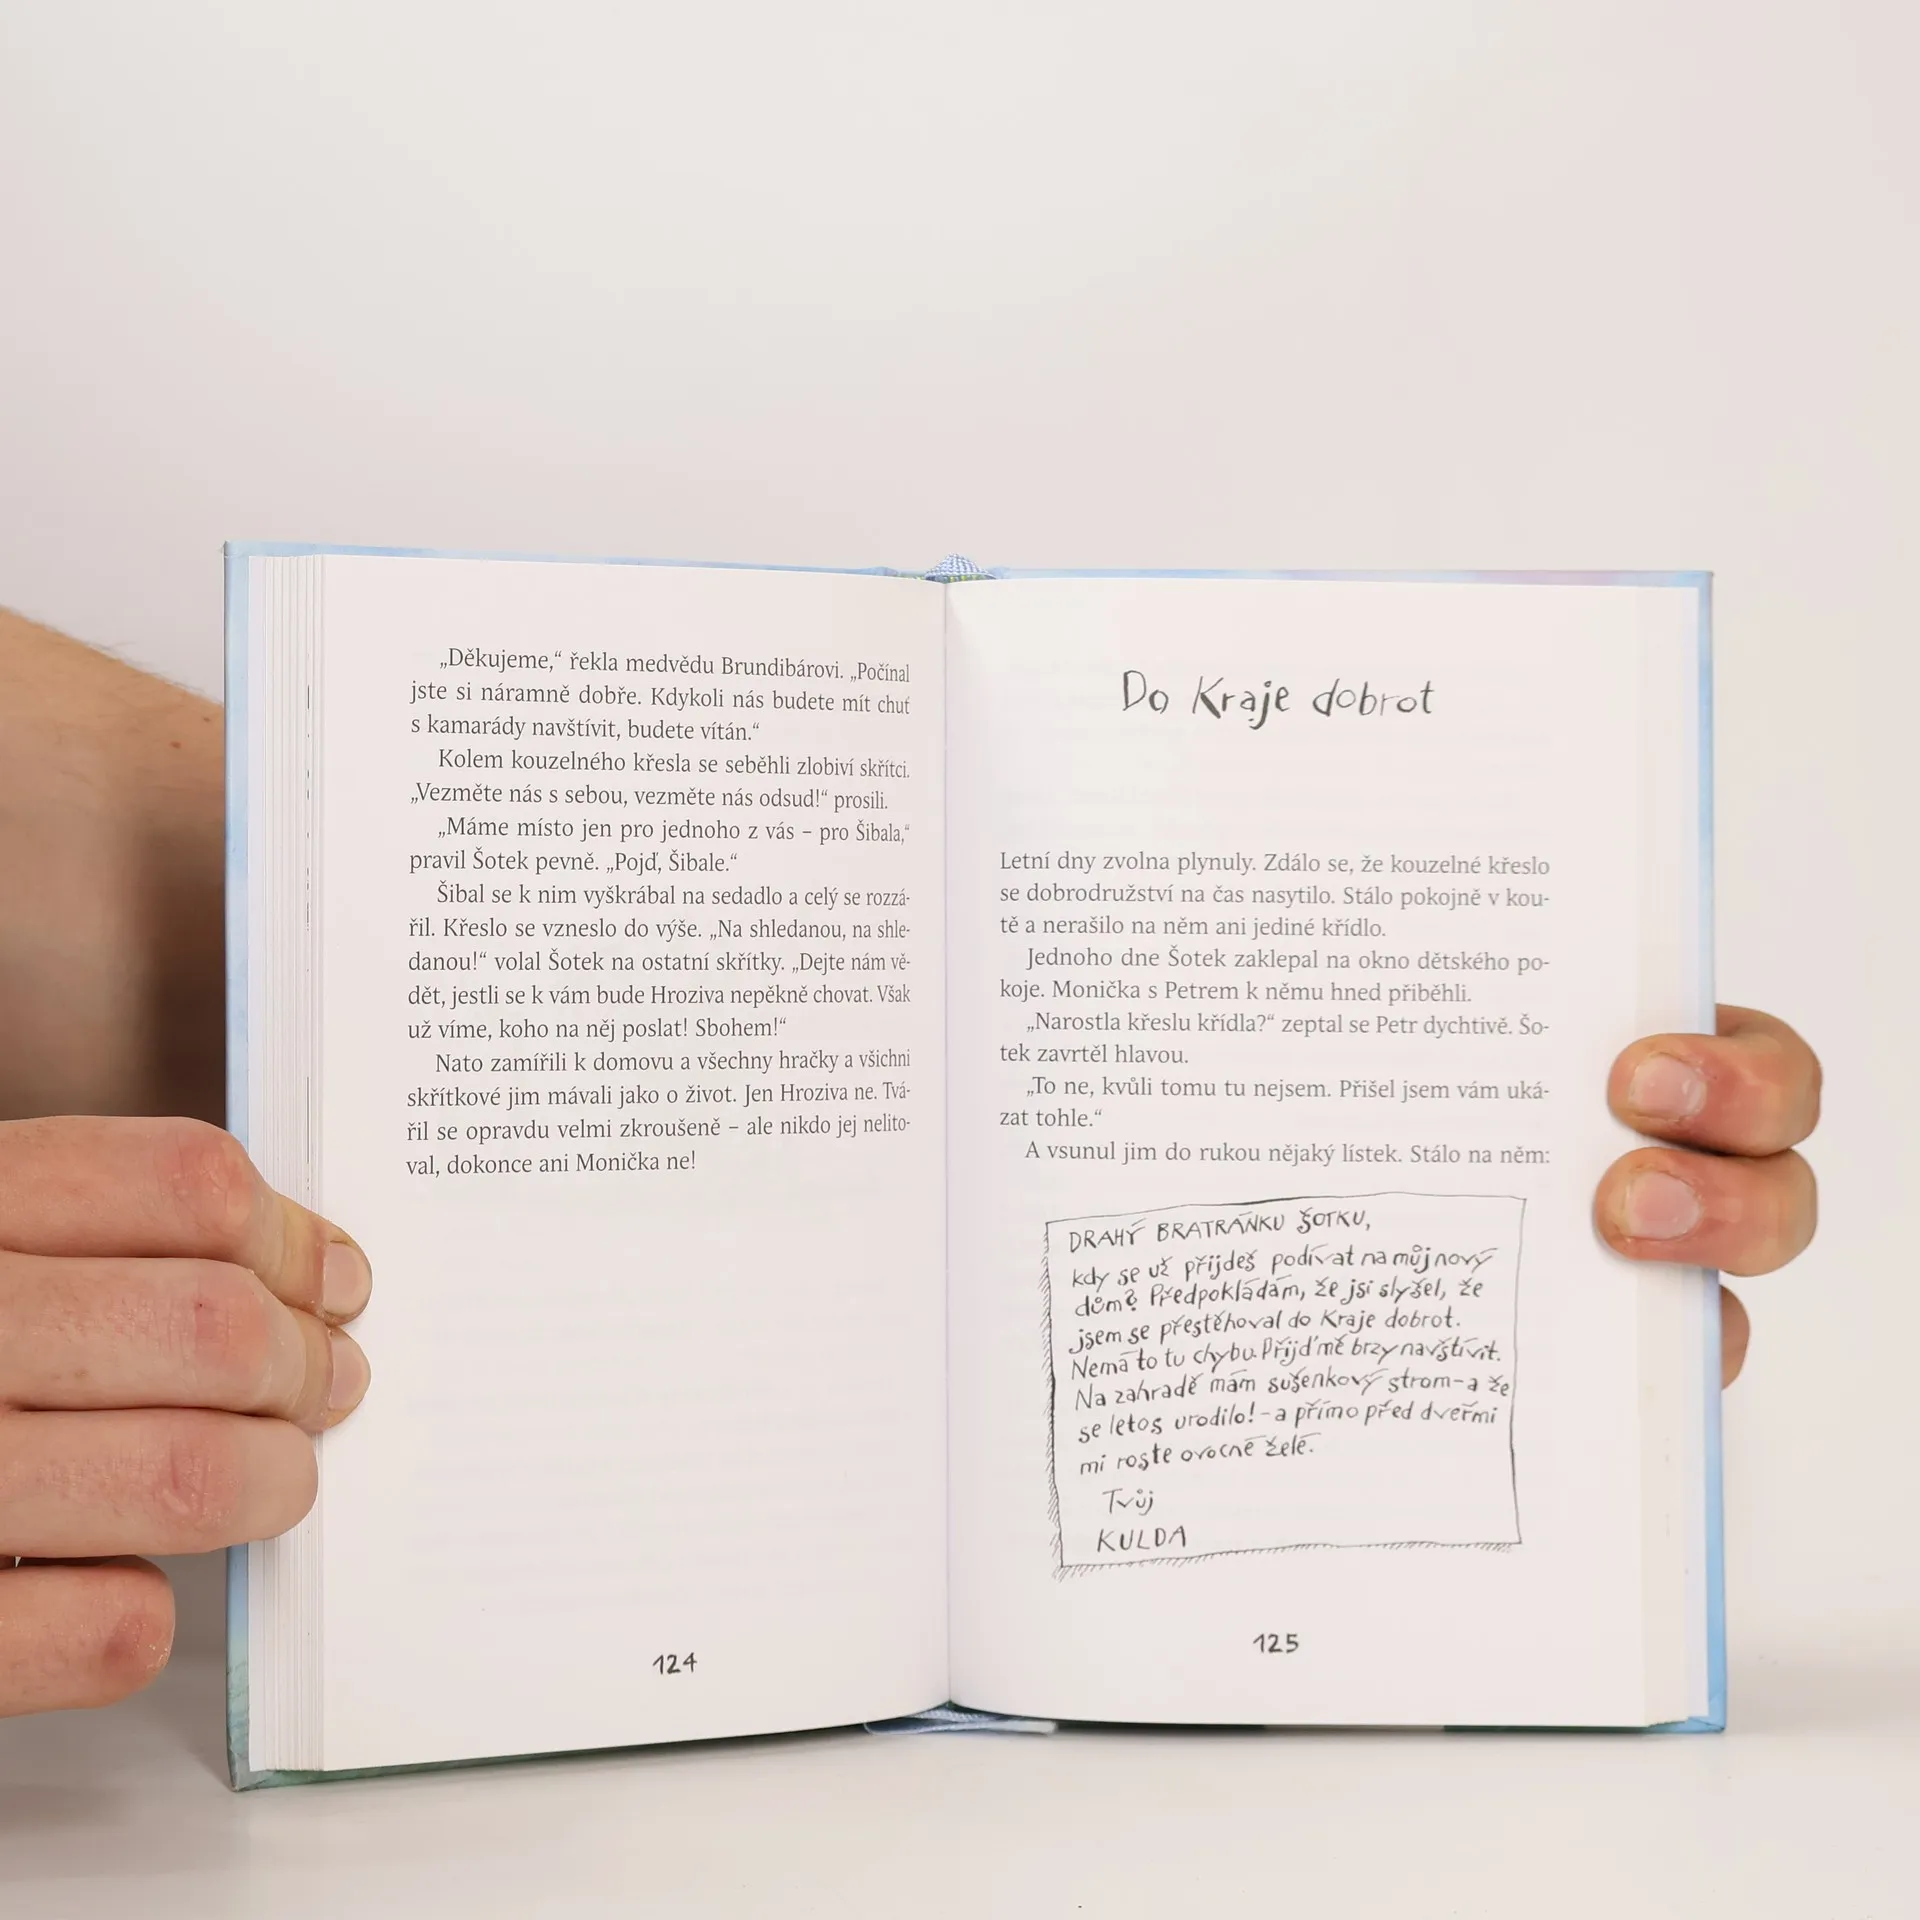 „Děkujeme,“ řekla medvědu Brundibárovi. „Počínal
jste si náramně dobře. Kdykoli nás budete mít chuť
s kamarády navštívit, budete vítán.“
Kolem kouzelného křesla se seběhli zlobiví skřítci.
„Vezměte nás s sebou, vezměte nás odsud!“ prosili.
„Máme místo jen pro jednoho z vás – pro Šibala,“
pravil Šotek pevně. „Pojď, Šibale.“
Šibal se k nim vyškrábal na sedadlo a celý se rozzá-
řil. Křeslo se vzneslo do výše. „Na shledanou, na shle-
danou!“ volal Šotek na ostatní skřítky. „Dejte nám vě-
dět, jestli se k vám bude Hroziva nepěkně chovat. Však
už víme, koho na něj poslat! Sbohem!“
Nato zamířili k domovu a všechny hračky a všichni
skřítkové jim mávali jako o život. Jen Hroziva ne. Tvá-
řil se opravdu velmi zkroušeně – ale nikdo jej nelito-
val, dokonce ani Monička ne!
124
Do Kraje dobrot
Letní dny zvolna plynuly. Zdálo se, že kouzelné křeslo
se dobrodružství na čas nasytilo. Stálo pokojně v kou-
tě a nerašilo na něm ani jediné křídlo.
Jednoho dne Šotek zaklepal na okno dětského po-
koje. Monička s Petrem k němu hned přiběhli.
„Narostla křeslu křídla?“ zeptal se Petr dychtivě. Šo-
tek zavrtěl hlavou.
„To ne, kvůli tomu tu nejsem. Přišel jsem vám uká-
zat tohle.“
A vsunul jim do rukou nějaký lístek. Stálo na něm:
DRAHÝ BRATRÁNKU ŠOTKU,
kdy se už přijdeš podívat na můj nový
dům? Předpokládám, že jsi slyšel, že
jsem se přestěhoval do Kraje dobrot.
Nemá to tu chybu. Přijď mě brzy navštívit.
Na zahradě mám sušenkový strom – a že
se letos urodilo! – a přímo před dveřmi
mi roste ovocné želé.
Tvůj
KULDA
125